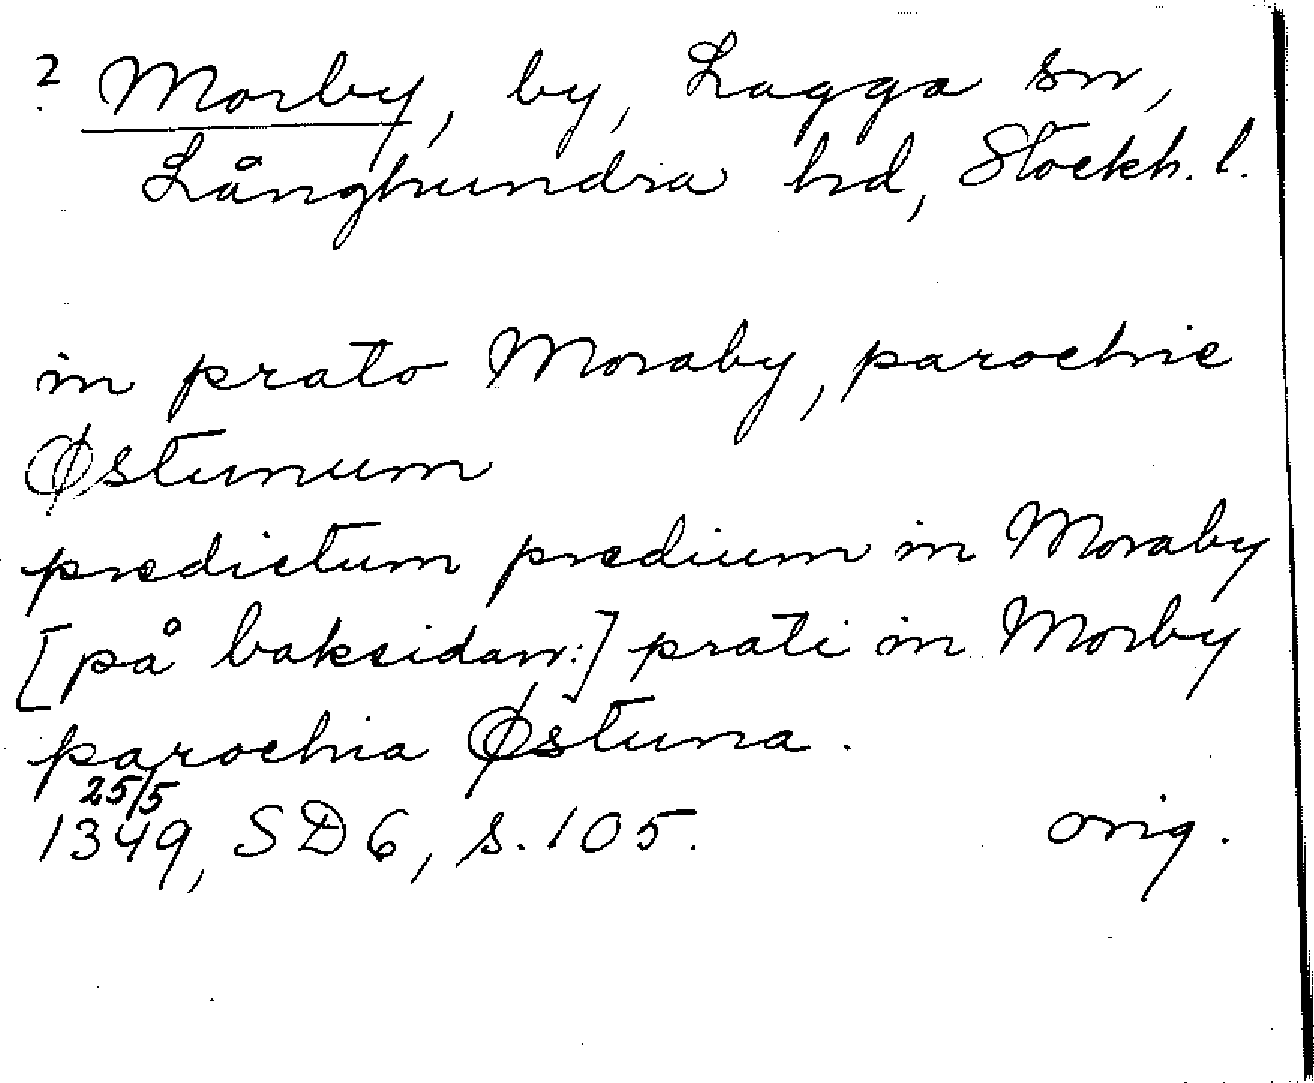 ? Morby, by, Lagga sn,
Långhundra hd, Stockh. l.
in prato Moraby, parochie
Østunum
predictum predium in Moraby
[på baksidan:] prati in Morby
parochia Østuna.
25/5
1349, SD 6, s. 105. orig.